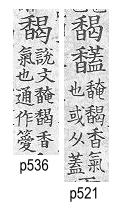 馤
說文馣馤香
氣也通作
p536
馤
馣馤香氣
也或从蓋
p521